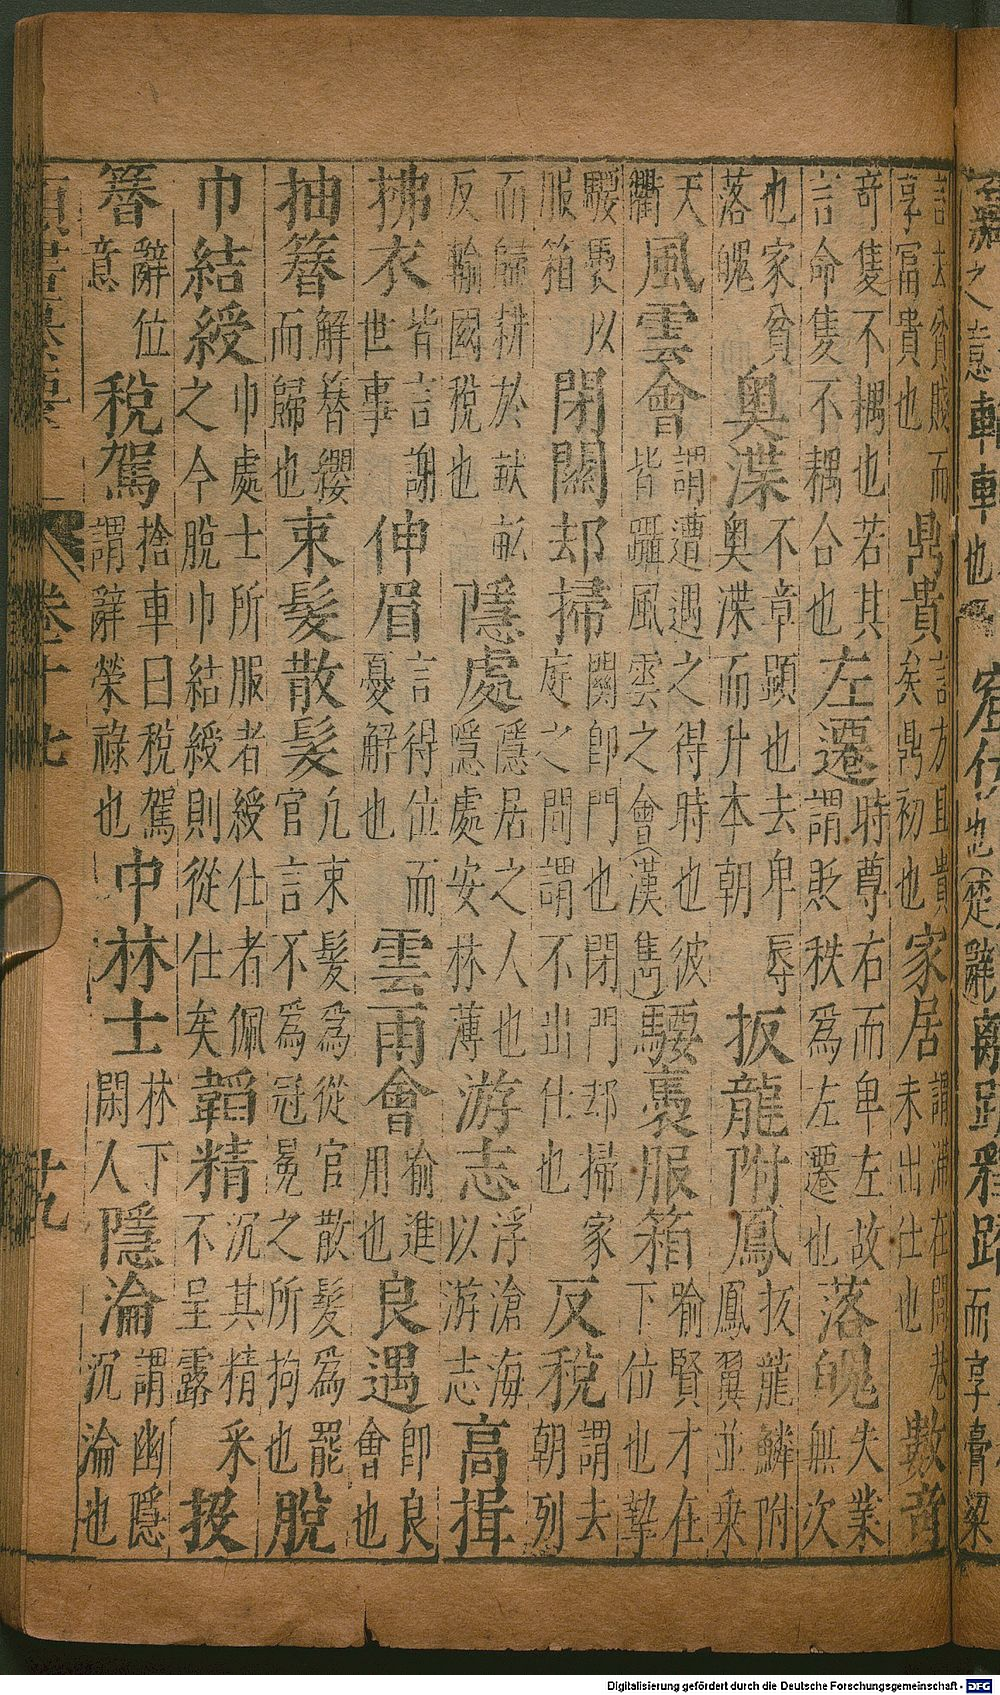 之意軒車軒也
離
而享膏粱
言去貧賤而享富貴也鼎貴言方且貴矣鼎初也家居謂猶在閭巷未出仕也數奇
奇隻不耦也若其言命隻不耦合也左遷時尊右而卑左故謂貶秩為左遷也落魄失業無次
也家貧落魄奧渫不章顯也去卑辱奧渫而升本朝扳龍附鳳扳龍鱗附鳳翼並乗
天衢風雲會謂遭遇之得時也彼皆躡風雲之會(漢雋)騕褭服箱喻賢才在下位也摯
騕褭以服箱閉關却掃關即門也閉門却掃家庭之間謂不出仕也反稅謂去朝列
而歸耕於畎畝反輸國稅也隱處隱居之人也隱處安林薄游志浮滄海以游志高揖
拂衣皆言謝世事伸眉言得位而憂解也雲雨會喻進用也良遇即良會也
抽簪解簪纓而歸也束髮散髮凡束髮為從官散髮為罷官言不為冠冕之所拘也脫
巾結綬巾處士所服者綬仕者佩之今脫巾結綬則從仕矣韜精沉其精采不呈露投
簪辭位意稅駕捨車曰稅駕謂辭榮祿也中林士林下閑人隱淪謂幽隱沉淪也
卷十七 十九
Digitalisierung gefördert durch die Deutsche Forschungsgemeinschaft - DFG